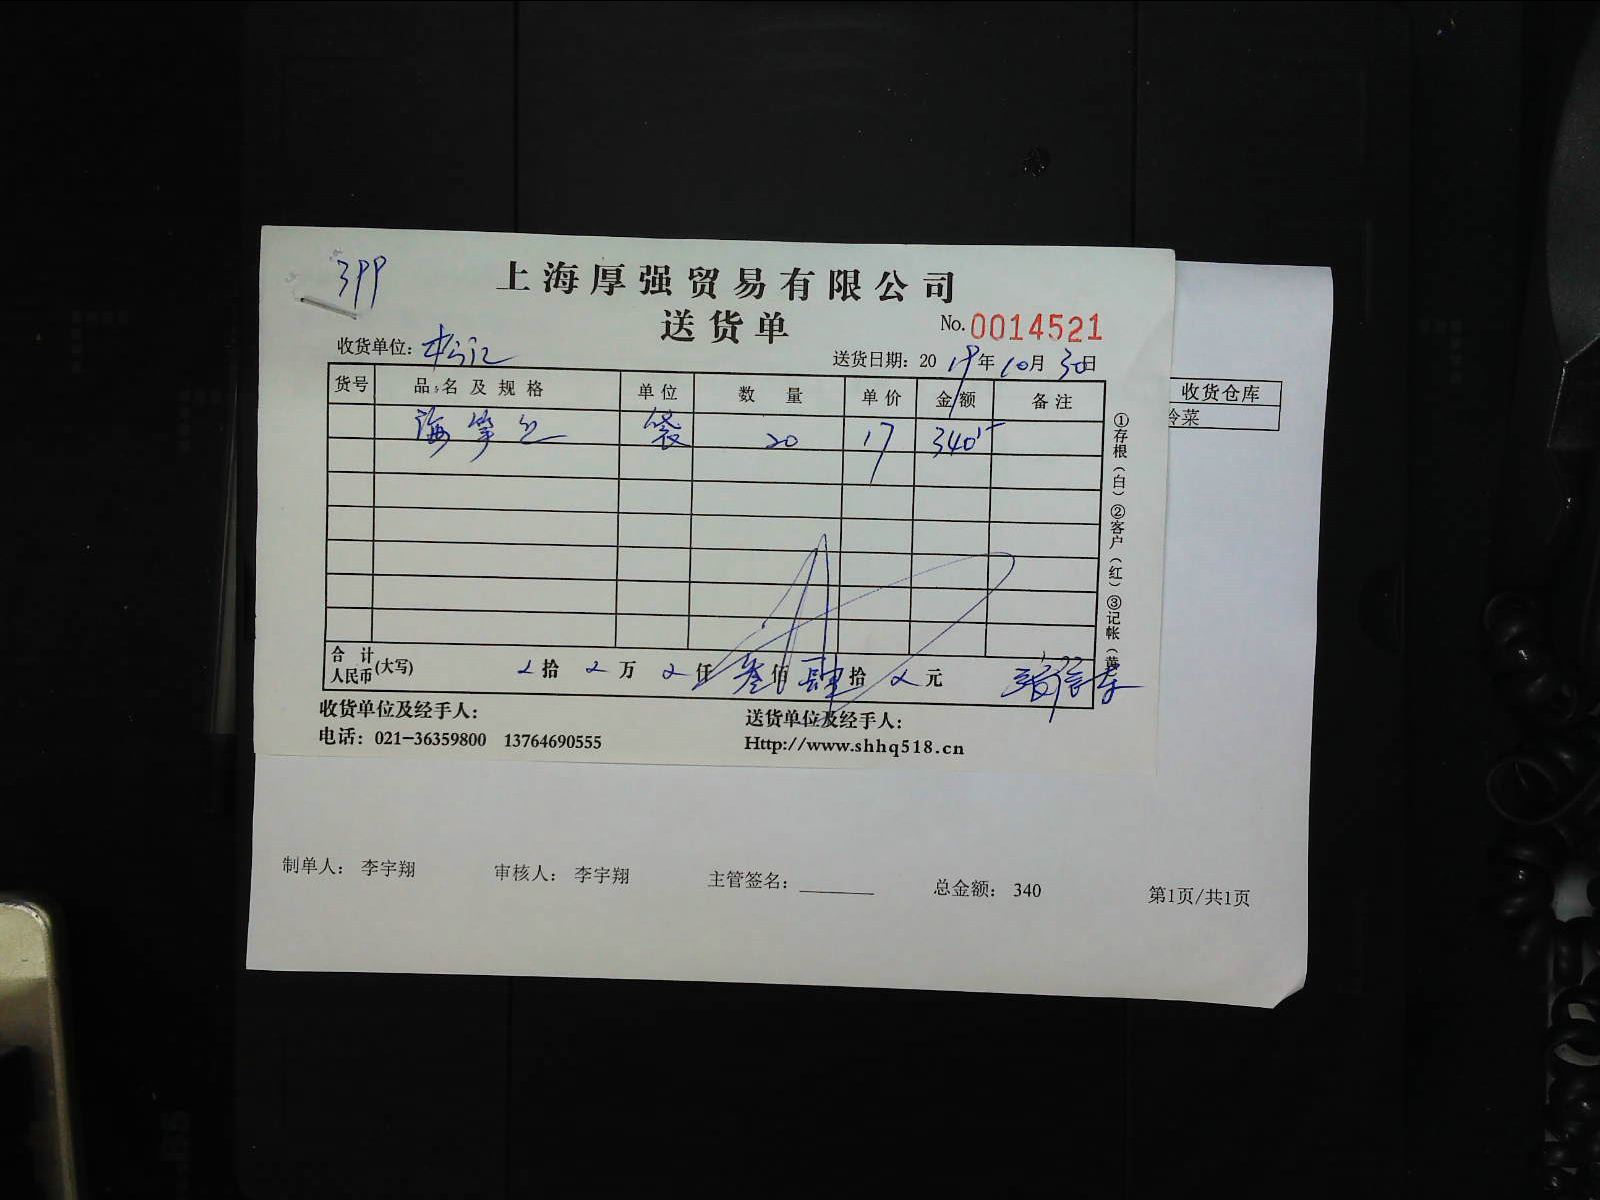 399
上海厚强贸易有限公司
送货单
No.0014521
收货单位：松江
送货日期：2019年10月30日
货号 品名及规格 单位 数量 单价 金额 备注
海笋丝 袋 20 17 340
合计人民币(大写) 拾 万 仟 叁佰肆拾 元
①存根(白)②客户(红)③记帐(黄
收货单位及经手人：
送货单位及经手人：
电话：021-36359800 13764690555
Http://www.shhq518.cn
收货仓库
冷菜
制单人： 李宇翔 审核人： 李宇翔 主管签名：_______ 总金额： 340 第1页/共1页